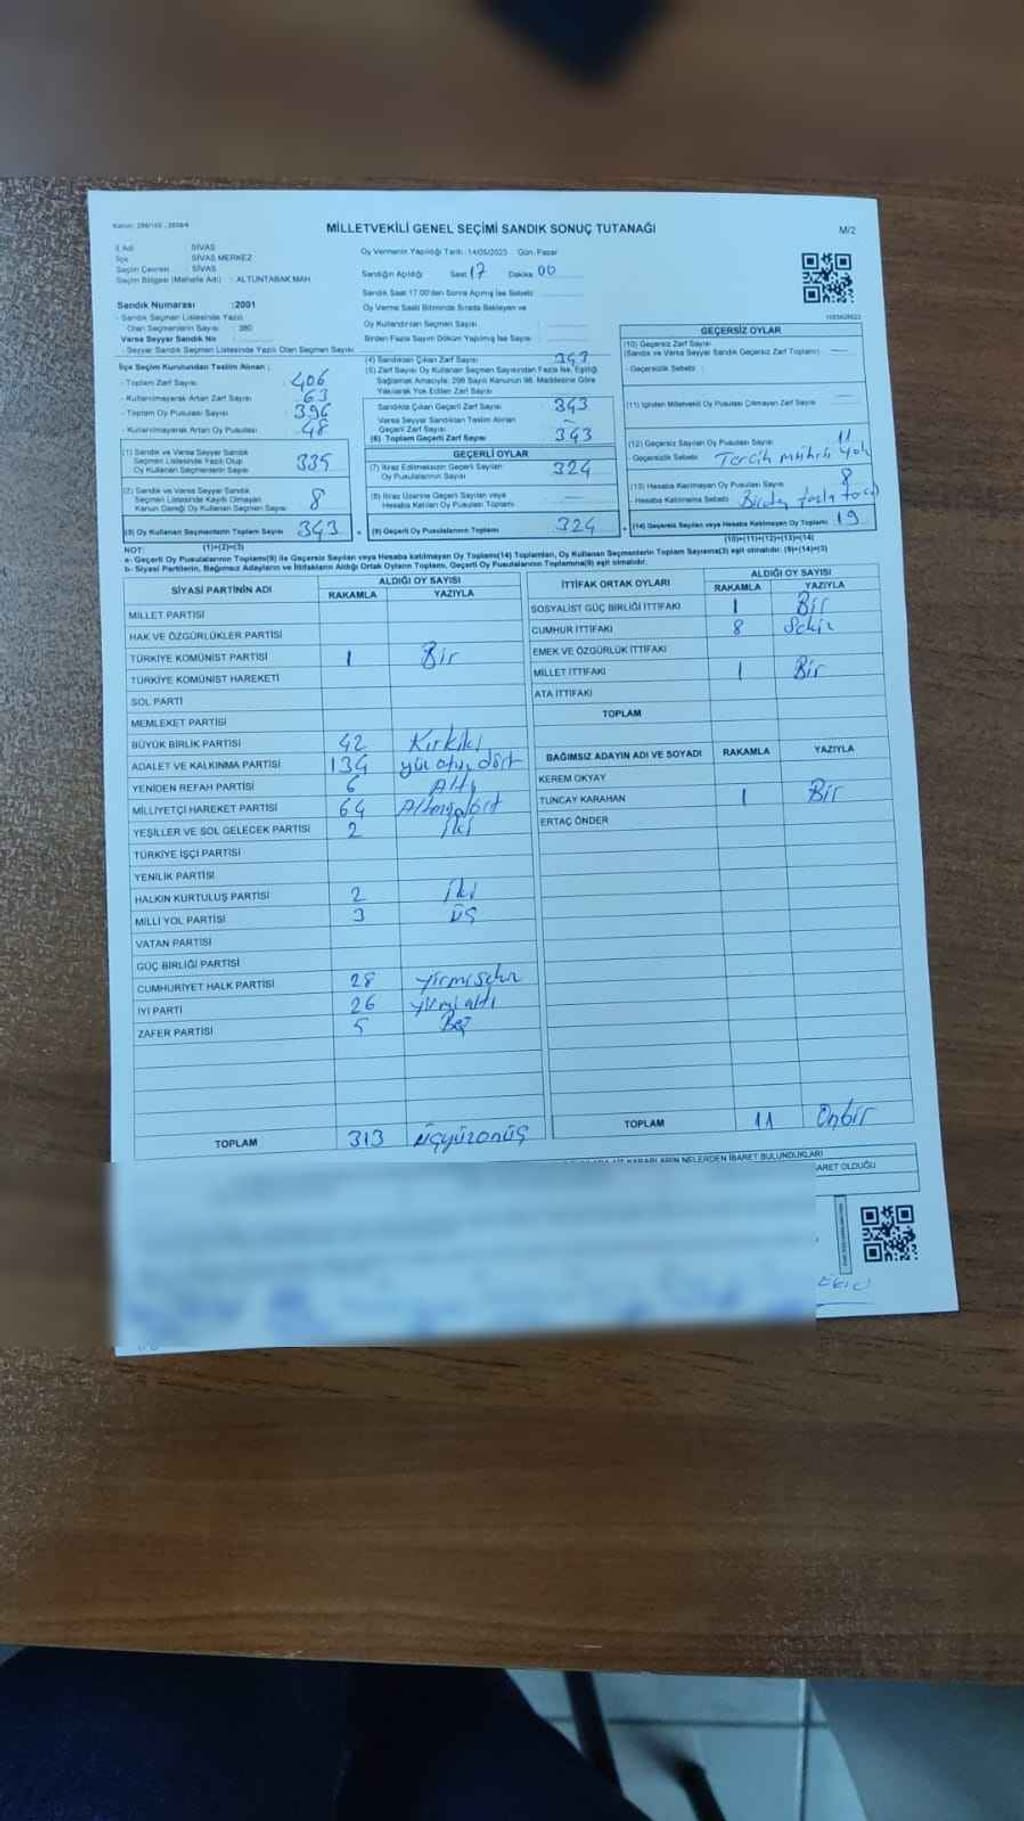 MİLLETVEKİLİ GENEL SEÇİMİ SANDIK SONUÇ TUTANAĞI
M/2
İl Adı : SİVAS
İlçe : SİVAS MERKEZ
Seçim Çevresi : SİVAS
Seçim Bölgesi (Mahalle Adı) : ALTUNTABAK MAH
Sandık Numarası : 2001
- Sandık Seçmen Listesinde Yazılı
Olan Seçmenlerin Sayısı : 380
Varsa Seyyar Sandık No
- Seyyar Sandık Seçmen Listesinde Yazılı Olan Seçmen Sayısı
Oy Vermenin Yapıldığı Tarih: 14/05/2023 Gün: Pazar
Sandığın Açıldığı Saat 17 Dakika 00
Sandık Saat 17.00'den Sonra Açılmış İse Sebebi
Oy Verme Saati Bitiminde Sırada Bekleyen ve
Oy Kullandırılan Seçmen Sayısı
Birden Fazla Sayım Döküm Yapılmış İse Sayısı
İlçe Seçim Kurulundan Teslim Alınan :
- Toplam Zarf Sayısı 406
- Kullanılmayarak Artan Zarf Sayısı 63
- Toplam Oy Pusulası Sayısı 396
- Kullanılmayarak Artan Oy Pusulası 48
(1) Sandık ve Varsa Seyyar Sandık
Seçmen Listesinde Yazılı Olup
Oy Kullanan Seçmenlerin Sayısı 335
(2) Sandık ve Varsa Seyyar Sandık
Seçmen Listesinde Kayıtlı Olmayan
Kanun Gereği Oy Kullanan Seçmen Sayısı 8
(3) Oy Kullanan Seçmenlerin Toplam Sayısı 343
(1)+(2)=(3)
(4) Sandıktan Çıkan Zarf Sayısı 343
(5) Zarf Sayısı Oy Kullanan Seçmen Sayısından Fazla İse, Eşitliği
Sağlamak Amacıyla; 298 Sayılı Kanunun 98. Maddesine Göre
Yakılarak Yok Edilen Zarf Sayısı
Sandıkta Çıkan Geçerli Zarf Sayısı 343
Varsa Seyyar Sandıktan Teslim Alınan
Geçerli Zarf Sayısı
(6) Toplam Geçerli Zarf Sayısı 343
GEÇERLİ OYLAR
(7) İtiraz Edilmeksizin Geçerli Sayılan
Oy Pusulalarının Sayısı 324
(8) İtiraz Üzerine Geçerli Sayılan veya
Hesaba Katılan Oy Pusulaları Toplamı
(9) Geçerli Oy Pusulalarının Toplamı 324
GEÇERSİZ OYLAR
(10) Geçersiz Zarf Sayısı
(Sandık ve Varsa Seyyar Sandık Geçersiz Zarf Toplamı)
- Geçersizlik Sebebi :
(11) İçinden Milletvekili Oy Pusulası Çıkmayan Zarf Sayısı
(12) Geçersiz Sayılan Oy Pusulası Sayısı 11
- Geçersizlik Sebebi Tercih mührü yok
(13) Hesaba Katılmayan Oy Pusulası Sayısı 8
- Hesaba Katılmama Sebebi Birden fazla
(14) Geçersiz Sayılan veya Hesaba Katılmayan Oy Toplamı 19
(10)+(11)+(12)+(13)=(14)
NOT:
a- Geçerli Oy Pusulalarının Toplamı(9) ile Geçersiz Sayılan veya Hesaba katılmayan Oy Toplamı(14) Toplamları, Oy Kullanan Seçmenlerin Toplam Sayısına(3) eşit olmalıdır. (9)+(14)=(3)
b- Siyasi Partilerin, Bağımsız Adayların ve İttifakların Aldığı Ortak Oyların Toplamı, Geçerli Oy Pusulalarının Toplamına(9) eşit olmalıdır.
SİYASİ PARTİNİN ADI ALDIĞI OY SAYISI
RAKAMLA YAZIYLA
MİLLET PARTİSİ
HAK VE ÖZGÜRLÜKLER PARTİSİ
TÜRKİYE KOMÜNİST PARTİSİ 1 Bir
TÜRKİYE KOMÜNİST HAREKETİ
SOL PARTİ
MEMLEKET PARTİSİ
BÜYÜK BİRLİK PARTİSİ 42 Kırkiki
ADALET VE KALKINMA PARTİSİ 134 yüz otuz dört
YENİDEN REFAH PARTİSİ 6 Altı
MİLLİYETÇİ HAREKET PARTİSİ 64 Altmışdört
YEŞİLLER VE SOL GELECEK PARTİSİ 2 İki
TÜRKİYE İŞÇİ PARTİSİ
YENİLİK PARTİSİ
HALKIN KURTULUŞ PARTİSİ 2 İki
MİLLİ YOL PARTİSİ 3 üç
VATAN PARTİSİ
GÜÇ BİRLİĞİ PARTİSİ
CUMHURİYET HALK PARTİSİ 28 yirmisekiz
İYİ PARTİ 26 yirmialtı
ZAFER PARTİSİ 5 Beş
TOPLAM 313 üçyüzonüç
İTTİFAK ORTAK OYLARI ALDIĞI OY SAYISI
RAKAMLA YAZIYLA
SOSYALİST GÜÇ BİRLİĞİ İTTİFAKI 1 Bir
CUMHUR İTTİFAKI 8 Sekiz
EMEK VE ÖZGÜRLÜK İTTİFAKI
MİLLET İTTİFAKI 1 Bir
ATA İTTİFAKI
TOPLAM
BAĞIMSIZ ADAYIN ADI VE SOYADI RAKAMLA YAZIYLA
KEREM OKYAY
TUNCAY KARAHAN 1 Bir
ERTAÇ ÖNDER
TOPLAM 11 Onbir
KARARLARIN NELERDEN İBARET BULUNDUKLARI
OLDUĞU